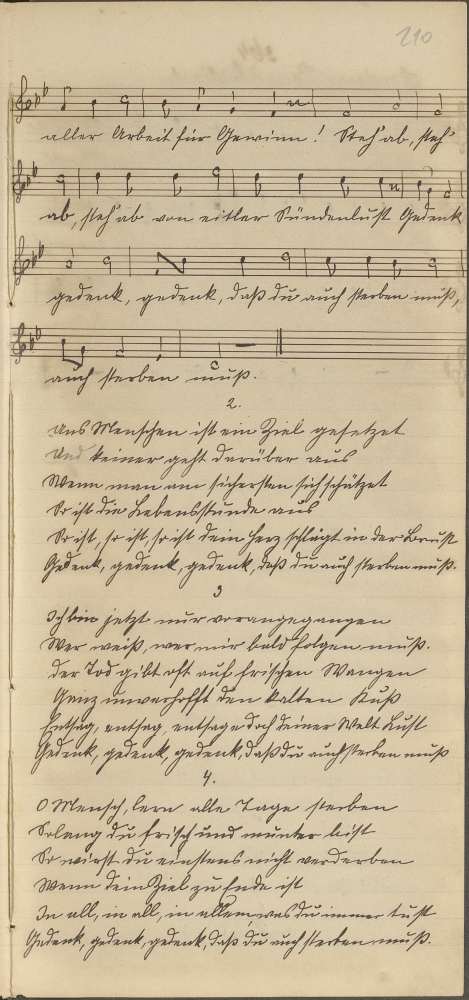 210
aller Arbeit für Gewinn! Steh' ab, steh'
ab, steh' ab von eitler Sündenlust Gedenk
gedenk, gedenk, daß du auch sterben mußt,
auch sterben mußt.
2.
Uns Menschen ist ein Ziel gesetzet
Und keiner geht darüber aus
Wenn man am sichersten sich schätzet
So ist die Lebensstunde aus
So ist, so ist, so ist dein Herz schlägt in der Brust
Gedenk, gedenk, gedenk, daß du auch sterben mußt.
3
Ich bin jetzt nur vorangegangen
Wer weiß, wer mir bald folgen muß.
Der Tod gibt oft auf frischen Wangen
Ganz unverhofft den kalten Kuß
Entsag, entsag, entsage doch deiner Welt Lust
Gedenk, gedenk, gedenk, daß du auch sterben mußt
4.
O Mensch, lern alle Tage sterben
Solang du frisch und munter bist
So wirst du einstens nicht verderben
Wenn dein Ziel zu Ende ist
In all, in all, in allem, was du immer tust
Gedenk, gedenk, gedenk, daß du auch sterben mußt.